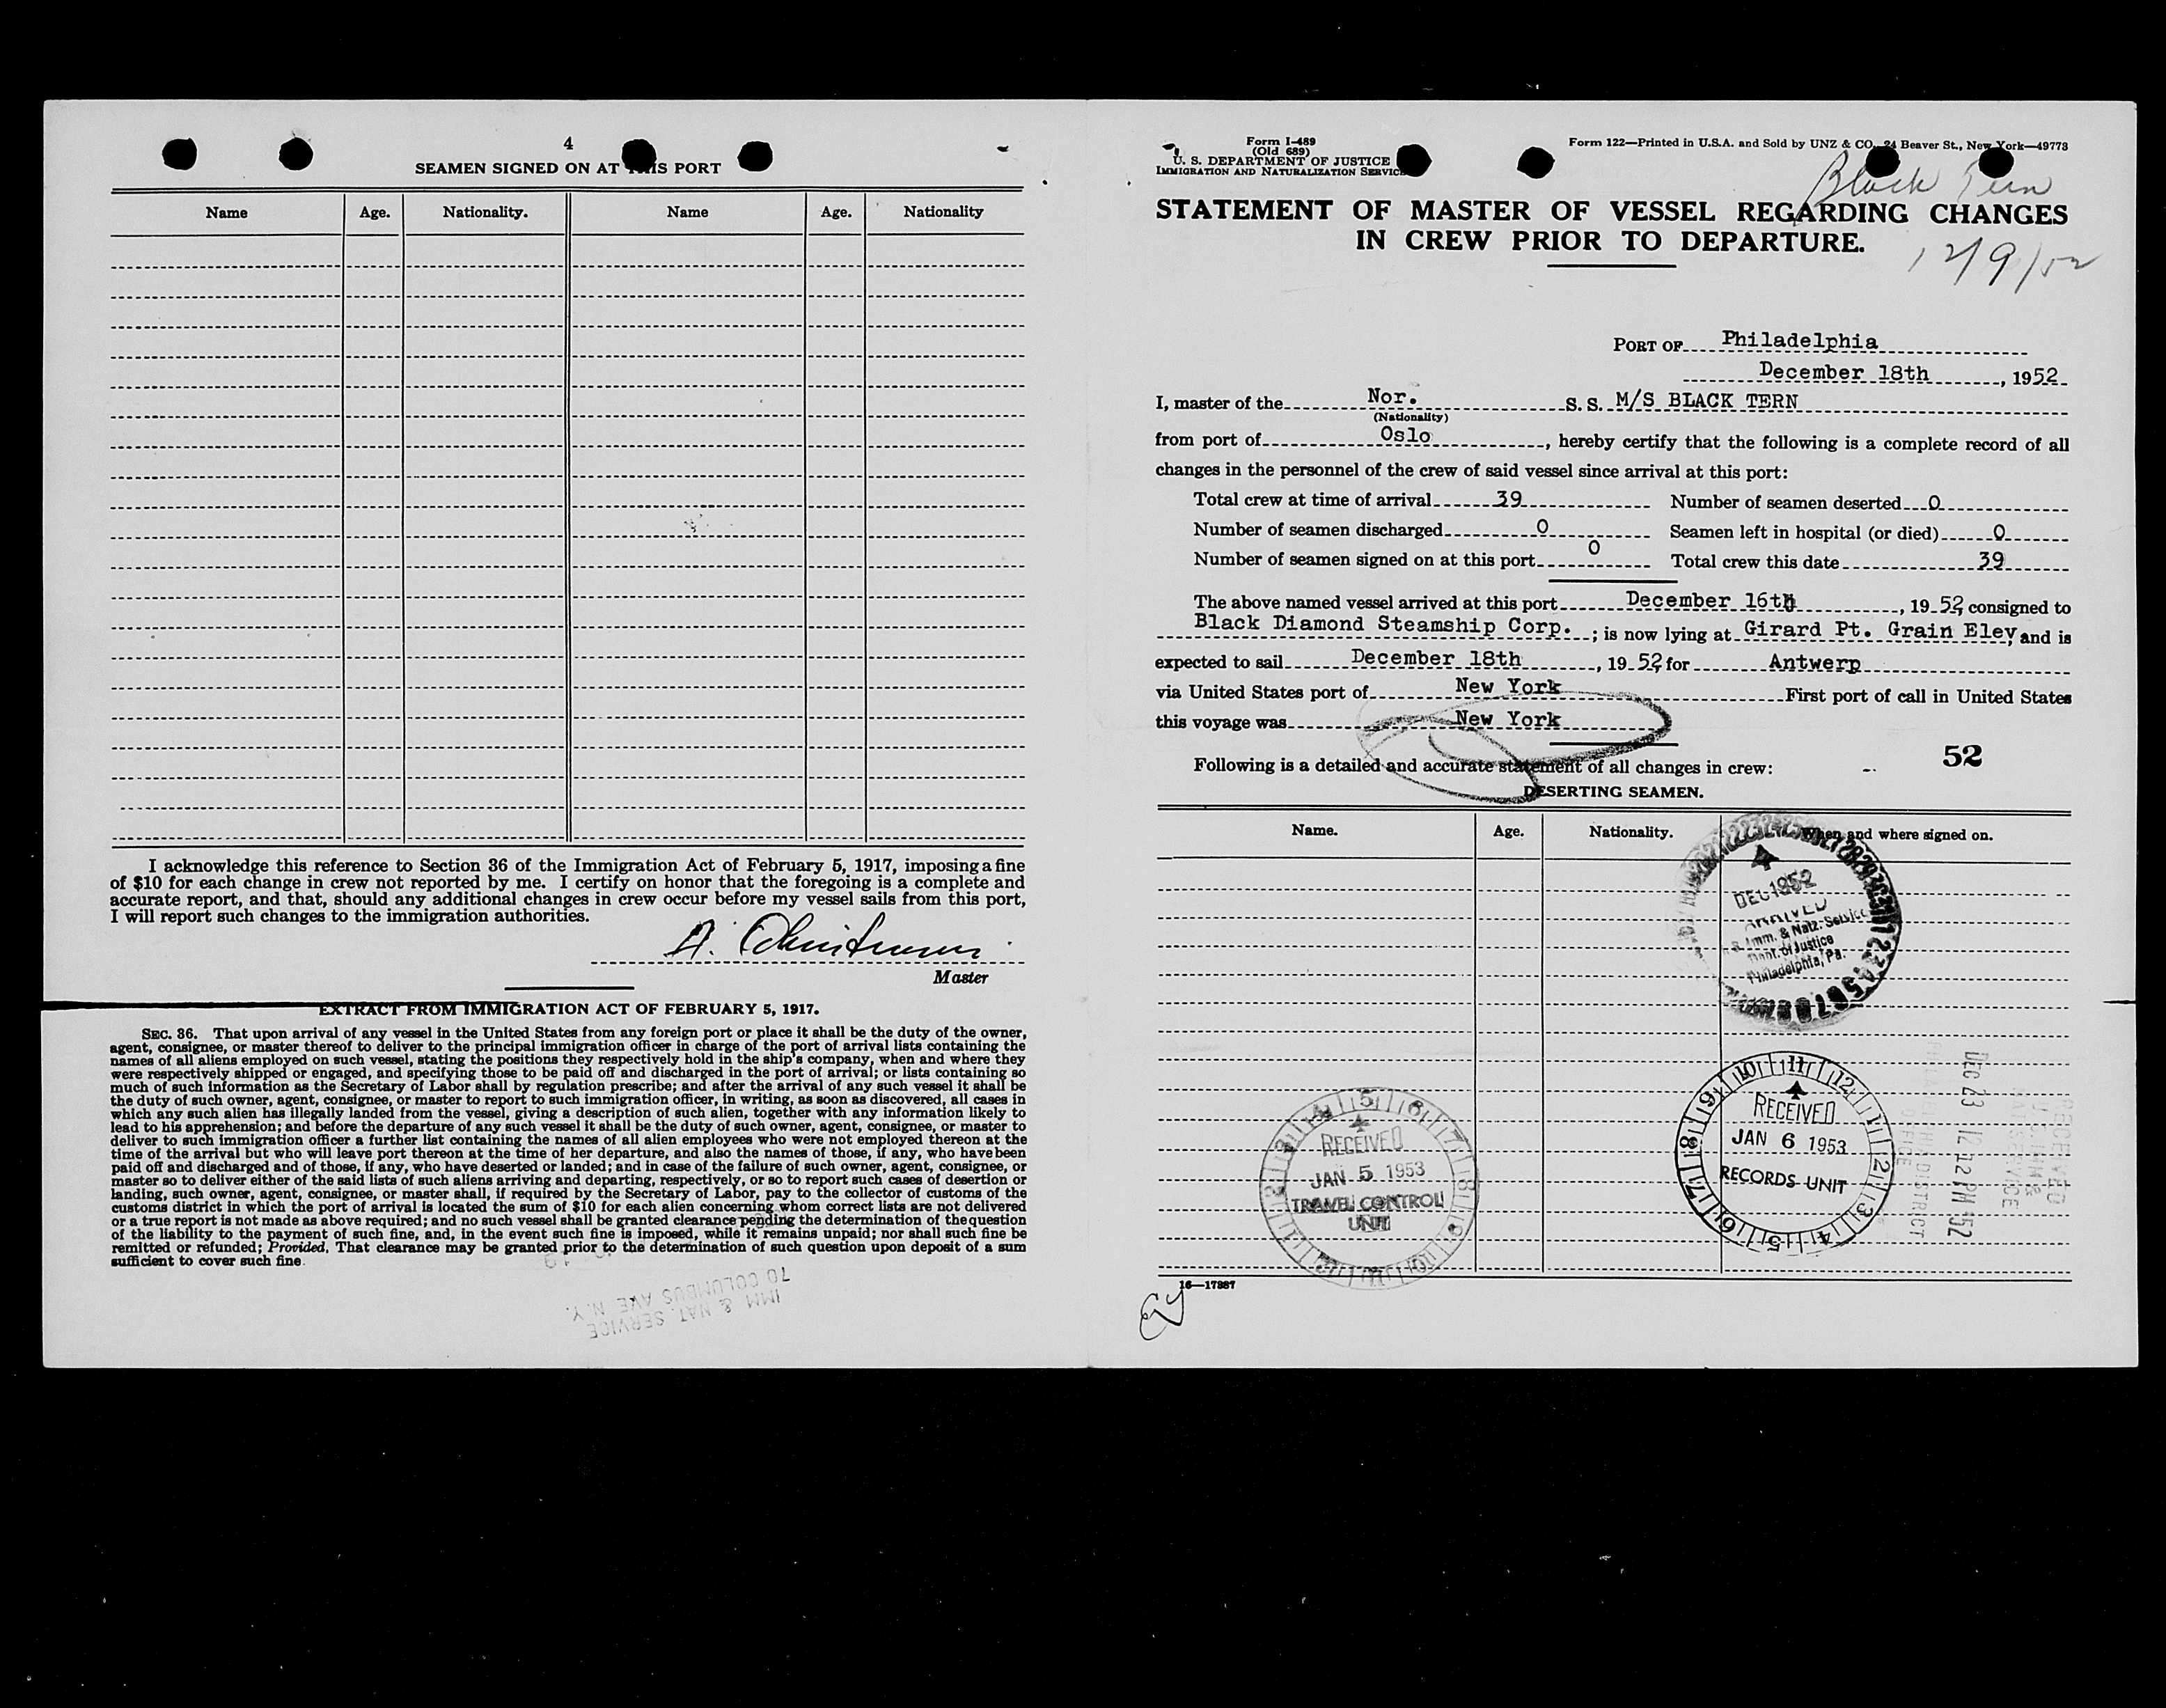 4
SEAMEN SIGNED ON AT THIS PORT
Name Age. Nationality. Name Age. Nationality
I acknowledge this reference to Section 36 of the Immigration Act of February 5, 1917, imposing a fine
of $10 for each change in crew not reported by me. I certify on honor that the foregoing is a complete and
accurate report, and that, should any additional changes in crew occur before my vessel sails from this port,
I will report such changes to the immigration authorities.
Master
EXTRACT FROM IMMIGRATION ACT OF FEBRUARY 5, 1917.
SEC. 36. That upon arrival of any vessel in the United States from any foreign port or place it shall be the duty of the owner,
agent, consignee, or master thereof to deliver to the principal immigration officer in charge of the port of arrival lists containing the
names of all aliens employed on such vessel, stating the positions they respectively hold in the ship's company, when and where they
were respectively shipped or engaged, and specifying those to be paid off and discharged in the port of arrival; or lists containing so
much of such information as the Secretary of Labor shall by regulation prescribe; and after the arrival of any such vessel it shall be
the duty of such owner, agent, consignee, or master to report to such immigration officer, in writing, as soon as discovered, all cases in
which any such alien has illegally landed from the vessel, giving a description of such alien, together with any information likely to
lead to his apprehension; and before the departure of any such vessel it shall be the duty of such owner, agent, consignee, or master to
deliver to such immigration officer a further list containing the names of all alien employees who were not employed thereon at the
time of the arrival but who will leave port thereon at the time of her departure, and also the names of those, if any, who have been
paid off and discharged and of those, if any, who have deserted or landed; and in case of the failure of such owner, agent, consignee, or
master so to deliver either of the said lists of such aliens arriving and departing, respectively, or so to report such cases of desertion or
landing, such owner, agent, consignee, or master shall, if required by the Secretary of Labor, pay to the collector of customs of the
customs district in which the port of arrival is located the sum of $10 for each alien concerning whom correct lists are not delivered
or a true report is not made as above required; and no such vessel shall be granted clearance pending the determination of the question
of the liability to the payment of such fine, and, in the event such fine is imposed, while it remains unpaid; nor shall such fine be
remitted or refunded; Provided, That clearance may be granted prior to the determination of such question upon deposit of a sum
sufficient to cover such fine.
IMM & NAT. SERVICE
70 COLUMBUS AVE N.Y.
Form I-489
(Old 689)
U. S. DEPARTMENT OF JUSTICE
IMMIGRATION AND NATURALIZATION SERVICE
Form 122—Printed in U.S.A. and Sold by UNZ & CO., 24 Beaver St., New York—49773
Black Tern
STATEMENT OF MASTER OF VESSEL REGARDING CHANGES
IN CREW PRIOR TO DEPARTURE.
12/9/52
PORT OF Philadelphia
December 18th, 1952
I, master of the Nor. S. S. M/S BLACK TERN
(Nationality)
from port of Oslo, hereby certify that the following is a complete record of all
changes in the personnel of the crew of said vessel since arrival at this port:
Total crew at time of arrival 39 Number of seamen deserted 0
Number of seamen discharged 0 Seamen left in hospital (or died) 0
Number of seamen signed on at this port 0 Total crew this date 39
The above named vessel arrived at this port December 16th, 1952, consigned to
Black Diamond Steamship Corp.; is now lying at Girard Pt. Grain Elev and is
expected to sail December 18th, 1952, for Antwerp
via United States port of New York First port of call in United States
this voyage was New York
52
Following is a detailed and accurate statement of all changes in crew:
DESERTING SEAMEN.
Name. Age. Nationality. When and where signed on.
DEC 1952
ARRIVED
Imm. & Natz. Service
Dept. of Justice
Philadelphia, Pa.
RECEIVED
JAN 5 1953
TRAVEL CONTROL
UNIT
RECEIVED
JAN 6 1953
RECORDS UNIT
DEC 23 12 12 PM '52
RECEIVED
16—17887